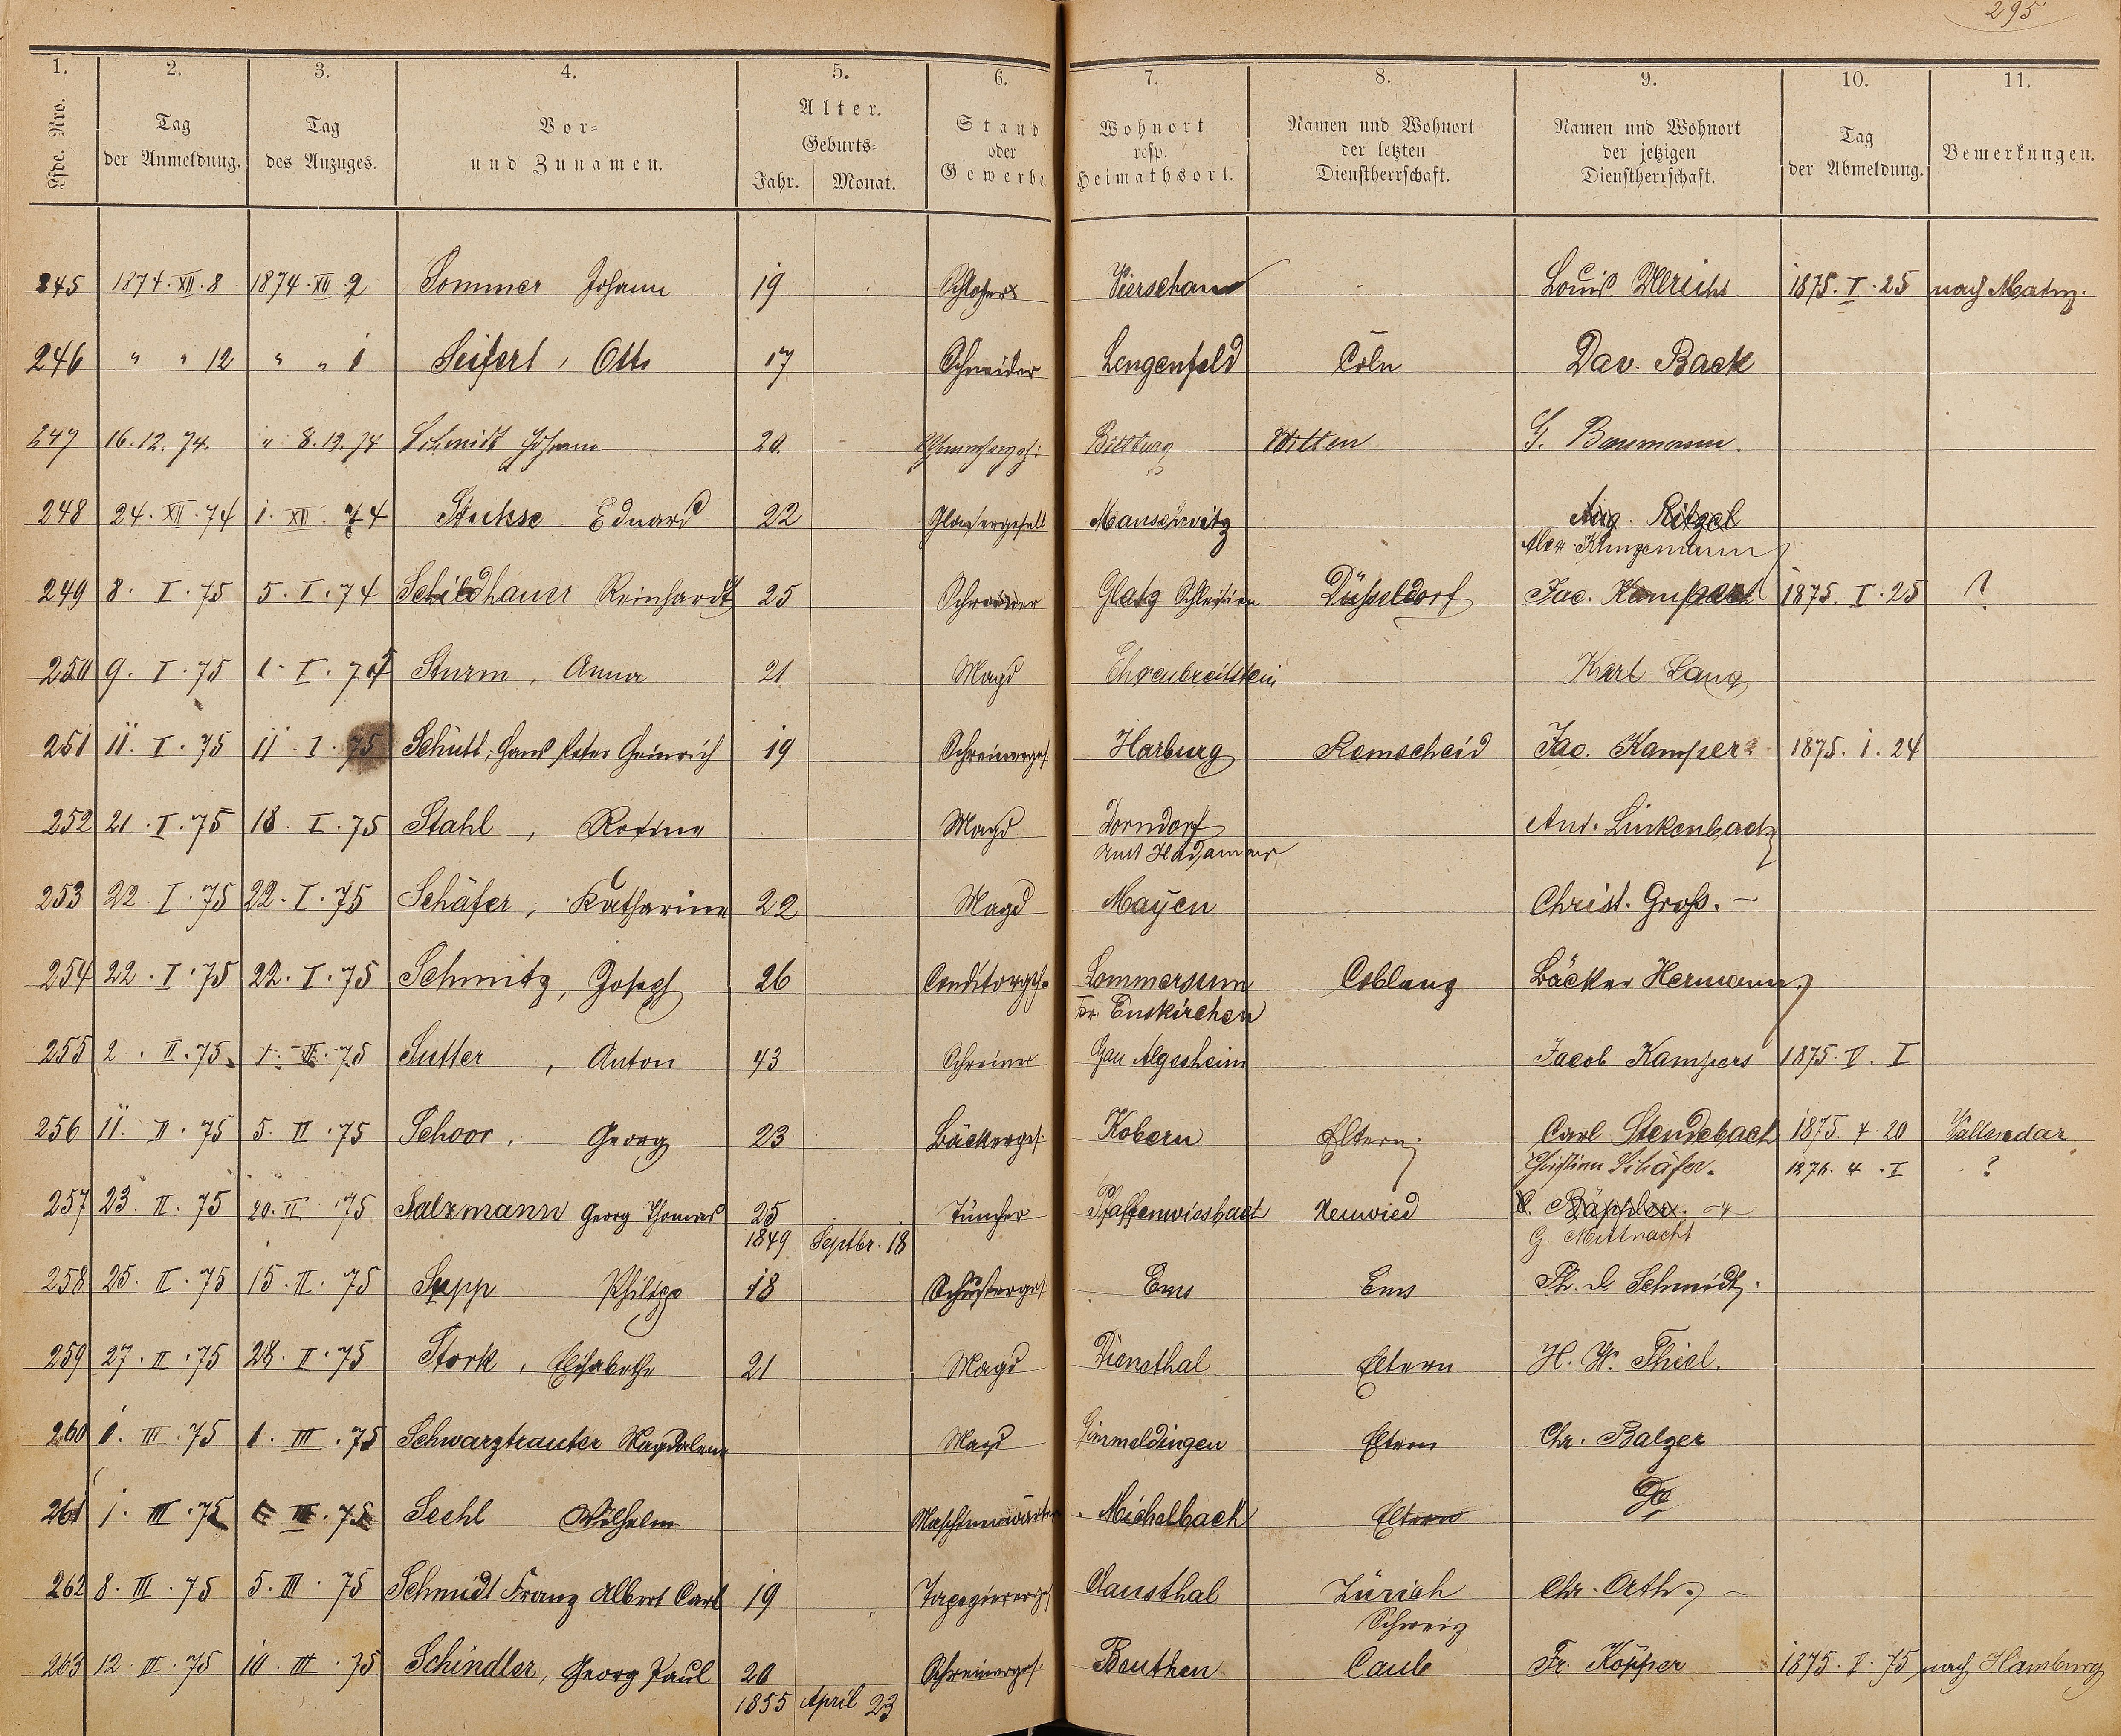 295
1. 2. 3. 4. 5. 6. 7. 8. 9. 10. 11.
Lfde. Nro. Tag der Anmeldung. Tag des Anzuges. Vor= und Zunamen. Alter. Geburts= Jahr. Monat. Stand oder Gewerbe. Wohnort resp. Heimathsort. Namen und Wohnort der letzten Dienstherrschaft. Namen und Wohnort der jetzigen Dienstherrschaft. Tag der Abmeldung. Bemerkungen.
245 1874.XII.8 1874.XII.2 Sommer Johann 19 Schlosser Louis Ulrich 1875.I.25 nach Mainz.
246 " " 12 " " 1 Seifert, Otto 17 Schneider Lengenfeld Cöln Dav. Back
247 16.12.74. " 8.12.74 Schmidt Johann 20. Bittburg Witten G. Baumann.
248 24.XII.74 1.XII.74 Eduard 22 Manschwitz Aug. Ritzel
Alex Klingemann
249 8.I.75 5.I.74 Schildhauer Reinhardt 25 Schreiner Glatz Schlesien Düsseldorf Jac. 1875.I.25 ?
250 9.I.75 1.I.75 Sturm, Anna 21 Magd Ehrenbreitstein Karl Lang
251 11.I.75 11.I.75 Schütt, Hans Peter Heinrich 19 Schreinerges. Harburg Remscheid Jac. Kampers 1875.1.24
252 21.I.75 18.I.75 Stahl, Rosina Magd Dorndorf Ant. Linkenbach
Amt Hadamar
253 22.I.75 22.I.75 Schäfer, Katharina 22 Magd Mayen Christ. Groß. –
254 22.I.75 22.I.75 Schmitz, Joseph 26 Conditorges. Lommersum Coblenz Bäcker Hermann
Kr. Euskirchen
255 2.II.75. 1.II.75 Sutter, Anton 43 Schreiner Gau Algesheim Jacob Kampers 1875.V.I
256 11.II.75 5.II.75 Schoor, Georg 23 Bäckerges. Kobern Eltern. Carl Stendebach 1875.4.20 Vallendar
Christian Schäfer. 1876.4.I ?
257 23.II.75 20.II.75 Salzmann Georg Thomas 25 Tüncher Pfaffenwiesbach Neuwied
1849 Septbr. 18 G. Mittnacht
258 25.II.75 15.II.75 Sepp Philipp 18 Schusterges. Ems Ems Ph. D. Schmidt.
259 27.II.75 28.I.75 Stork, Elisabethe 21 Magd Dienethal Eltern H. W. Thiel.
260 1.III.75 1.III.75 Schwarztrauter Magdalena Magd Gimmeldingen Eltern Chr. Balzer
261 1.III.75 1.III.75 Seehl Wilhelm Maschinenwärter Michelbach Eltern
262 8.III.75 5.III.75 Schmidt Franz Albert Carl 19 Tapeziererges. Clausthal Zürich Chr. Orth. –
Schweiz
263 12.II.75 10.III.75 Schindler, Georg Paul 20 Schreinerges. Beuthen Caub Fr. Köpper 1875.V.75 nach Hamburg
1855 April 23